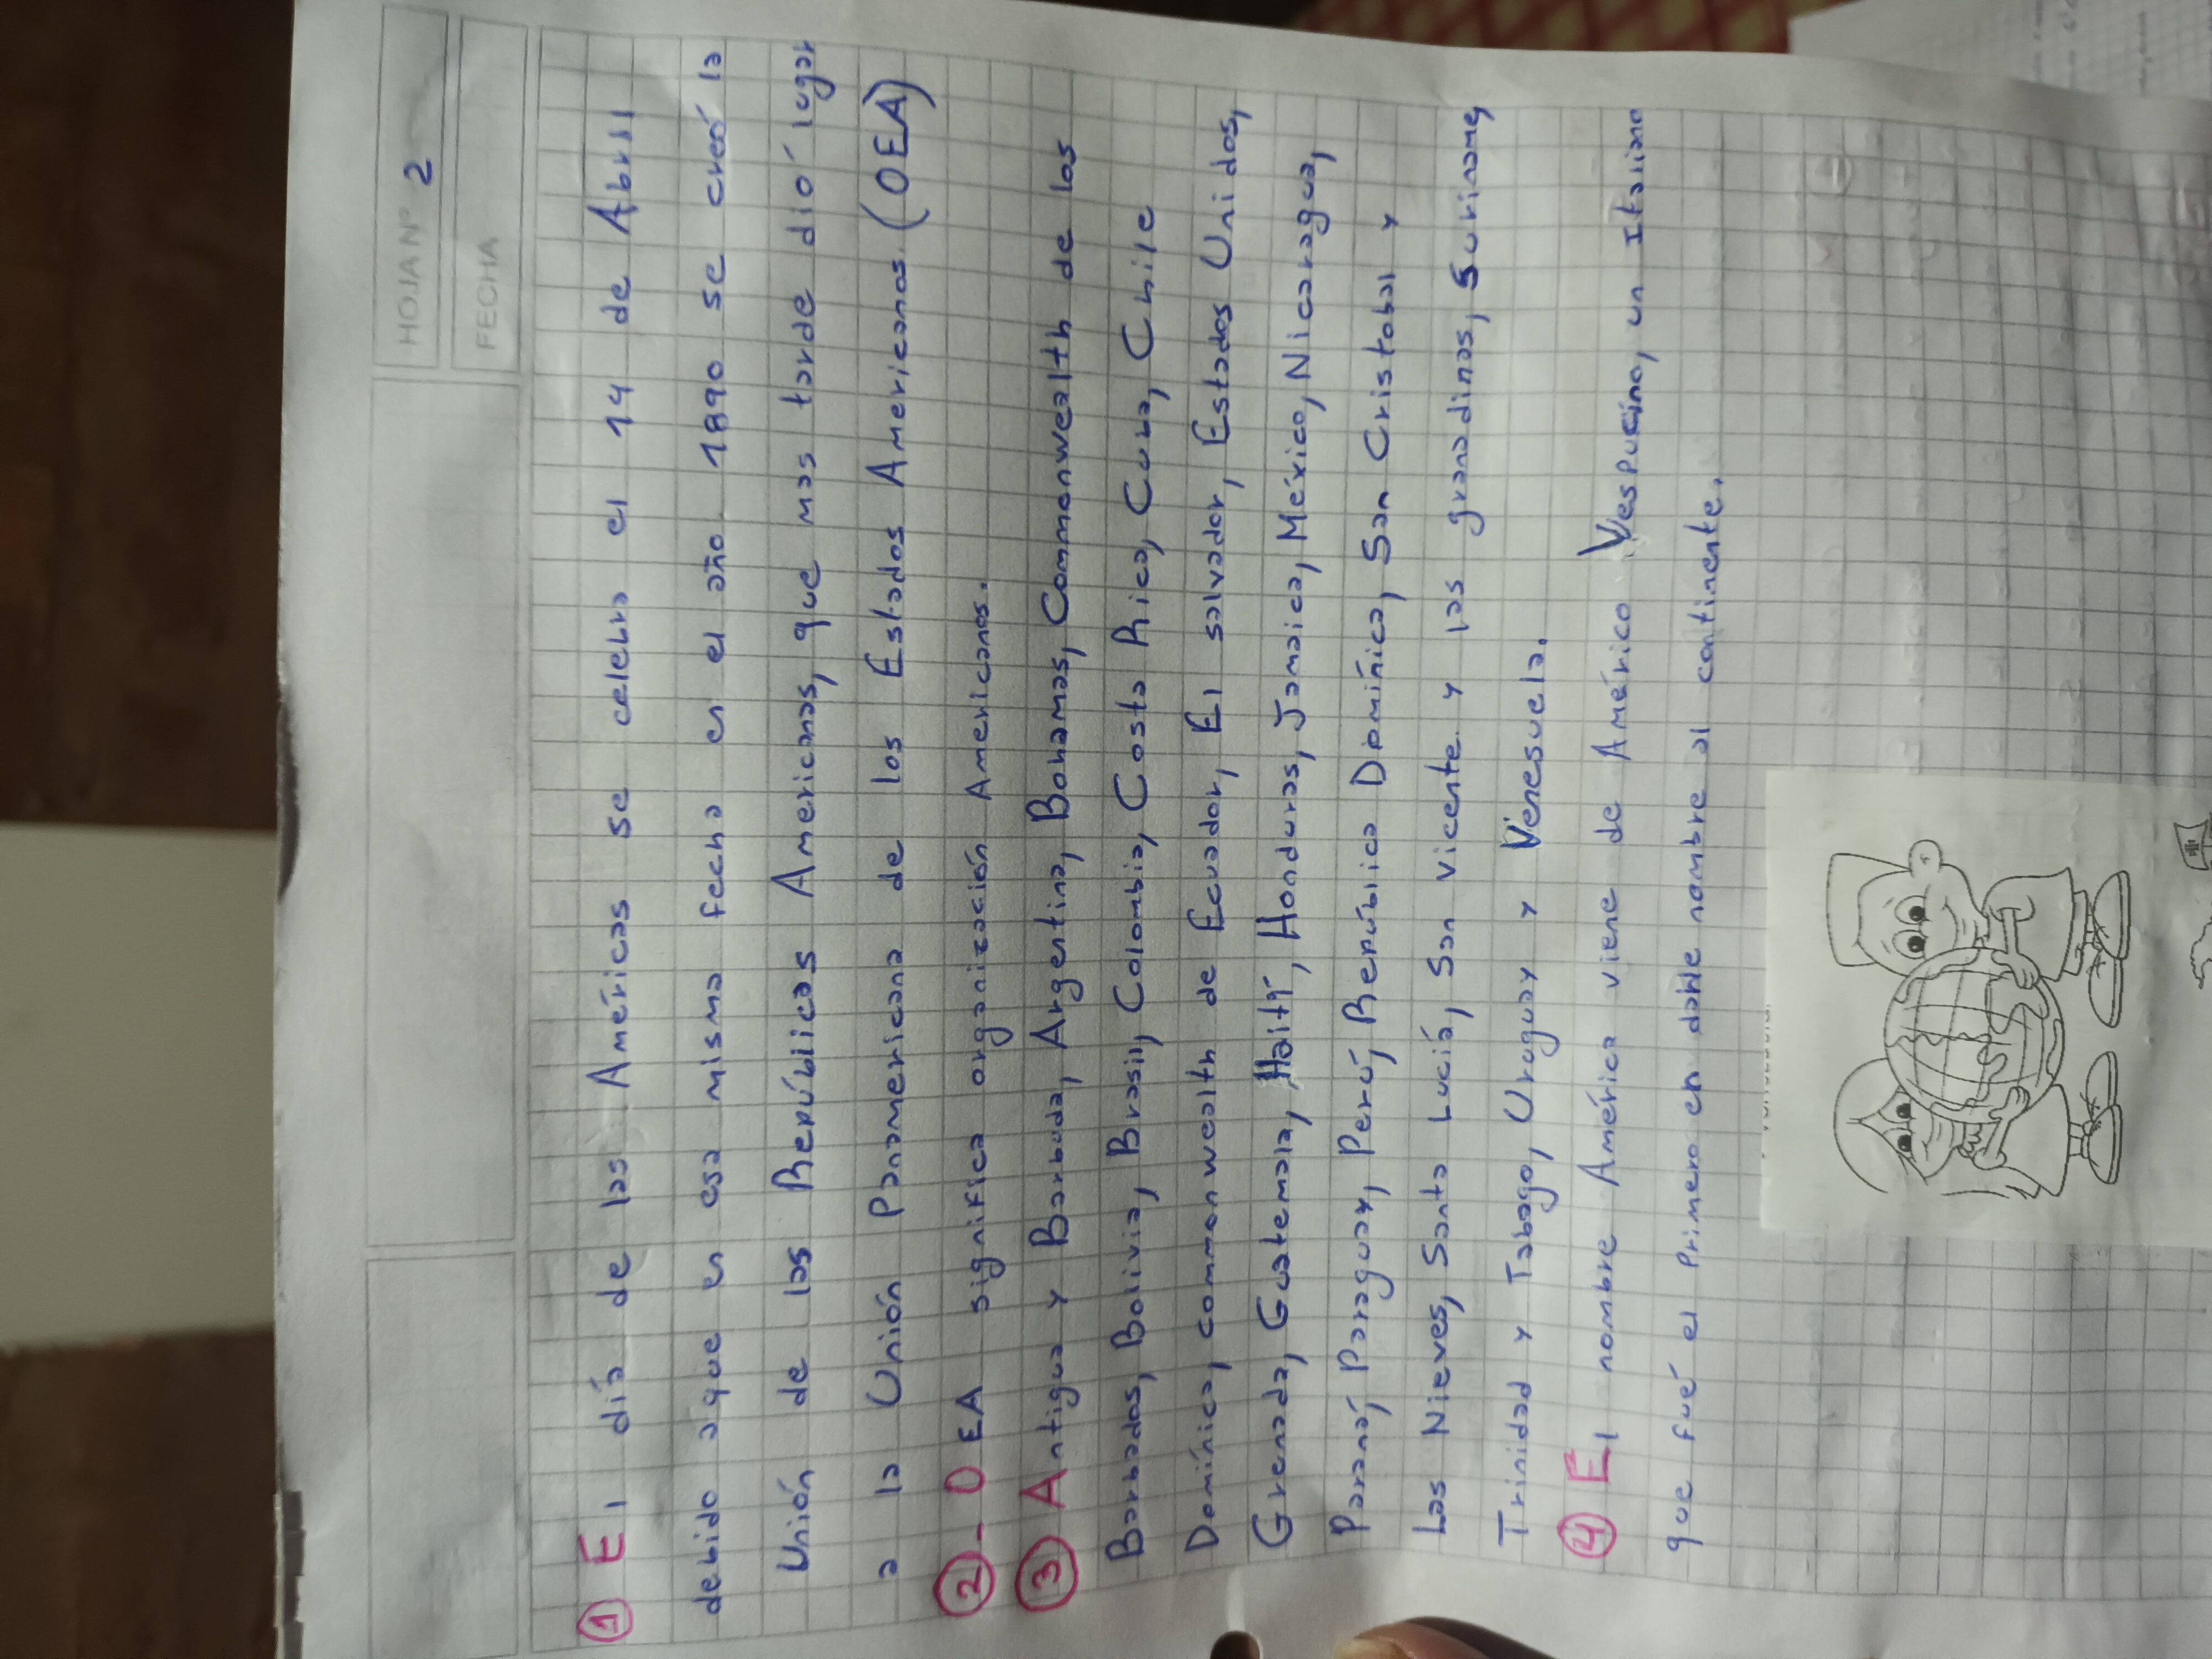 HOJA Nº 2
FECHA
① El día de las Américas se celebra el 14 de Abril
debido aque en esa misma fecha en el año 1890 se creó la
Unión de las Repúblicas Americanas, que mas tarde dió lugar
a la Unión Panamericana de los Estados Americanos. (OEA)
②- OEA significa organización Americanos.
③ Antigua y Barbuda, Argentina, Bahamas, Commonwealth de las
Barbados, Bolivia, Brasil, Colombia, Costa Rica, Cuba, Chile
Domínica, commonwealth de Ecuador, El salvador, Estados Unidos,
Grenada, Guatemala, Haití, Honduras, Jamaica, México, Nicaragua,
Paraná, Paraguay, Perú, República Domínica, San Cristobal y
Las Nieves, Santa Lucía, San Vicente y las granadinas, Suriname,
Trinidad y Tabago, Uruguay y Venesuela.
④ El nombre América viene de Américo Vespucino, un Italiano
que fué el Primero en darle nombre al continente.